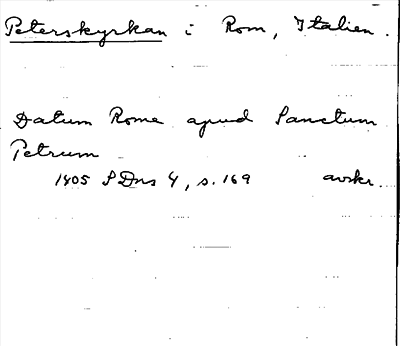 Peterskyrkan i Rom, Italien.
Datum Rome apud Sanctum
Petrum
1405 SDns 4, s. 169 avskr.